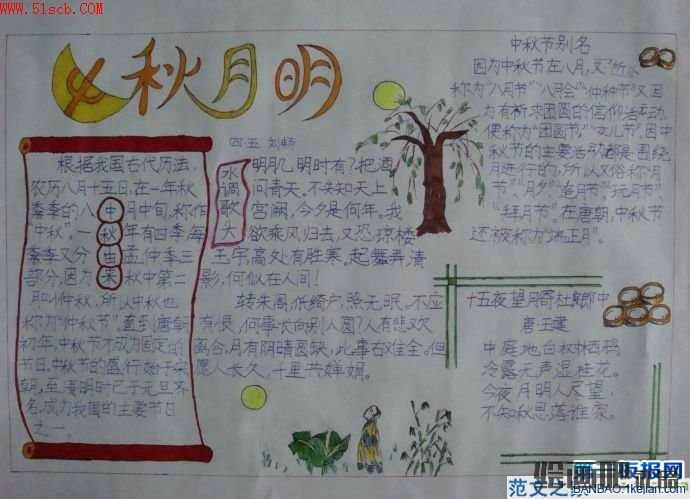 www.51scb.com
中秋月明
四·五
根据我国古代历法,
农历八月十五日,在一年秋
季季的八中月中旬,称作
“中秋”。一秋年有四季,每
季又分由孟、仲、季三
部分,因为来秋中第二
叫仲秋,所以中秋也
称为“仲秋节”,直到唐朝
初年,中秋节才成为固定的
节日。中秋节的盛行始于宋
朝,至清明时已于元旦齐
名,成为我国的主要节日
之一。
水调歌头
明月几时有?把酒
问青天。不知天上
宫阙,今夕是何年。我
欲乘风归去,又恐琼楼
玉宇,高处不胜寒。起舞弄清
影,何似在人间!
转朱阁,低绮户,照无眠。不应
有恨,何事长向别人圆?人有悲欢
离合,月有阴晴圆缺,此事古难全。但
愿人长久,千里共婵娟。
中秋节别名
因为中秋节在八月,又所以
称为“八月节”“八月会”“仲秋节”又因
为有祈求团圆的信仰活动
便称为“团圆节”“女儿节”。因中
秋节的主要活动都是围绕
月进行的,所以又俗称“月
节”“月夕”“追月节”“玩月节”、
“拜月节”。在唐朝,中秋节
还被称为“端正月”。
十五夜望月寄杜郎中
唐王建
中庭地白树栖鸦,
冷露无声湿桂花。
今夜月明人尽望,
不知秋思落谁家。
范文之
BANBAO.1kejian.com